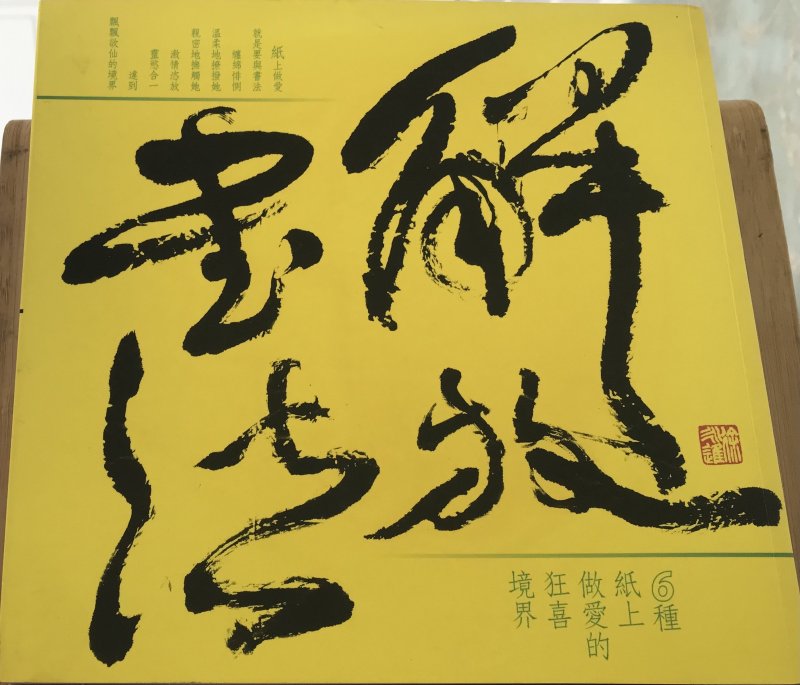 紙上做愛
就是要與書法
纏綿悱惻
溫柔地撩撥她
親密地撫觸她
激情恣放
靈慾合一
達到
飄飄欲仙的境界
解放
書法
徐永進
⑥種
紙上
做愛的
狂喜
境界